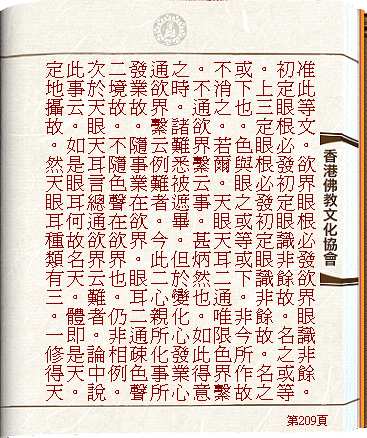 准此等文。欲界眼根必發欲界眼識非餘。
初定眼根必發初定眼識非餘故。名之或等
。上三定眼根必發初定眼識非餘故。名之
或下也。色與眼之或等或下。非今所作故
不消之。若爾。天眼天耳二通唯限色界繫
。不通欲界繫云事。甚炳然也。如此得意
之時。諸難悉被遮畢。但於變化心發業心
通欲界繫云例難者。今此二心親所化事所
發業故。隨事業在欲界。眼耳二通疎色聲
二境故。不隨色聲在欲界也。仍非相例。
次於天眼天耳言總通欲界云難者。論中說
此事云。如是眼耳何故名天。體即是天。
定地攝故。然天眼耳種類有三。一修得天
香港佛教文化協會
第209頁